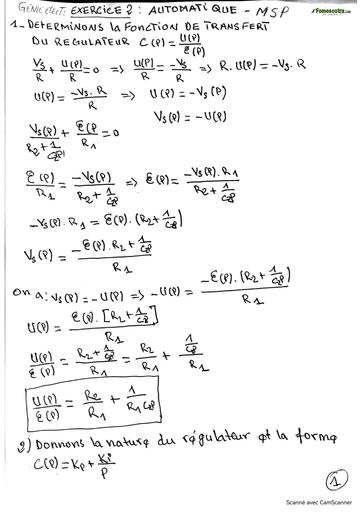 GÉNIE élect: EXERCICE 2 : AUTOMATIQUE - MSP
Fomesoutra.com
1- DETERMINONS LA FONCTION DE TRANSFERT
DU REGULATEUR C(P) = U(P)/ε(P)
Vs/R + U(P)/R = 0 => U(P)/R = -Vs/R => R.U(P) = -Vs.R
U(P) = -Vs.R/R => U(P) = -Vs(P)
Vs(P) = -U(P)
Vs(P)/(R2 + 1/CP) + ε(P/R1 = 0
ε(P)/R1 = -Vs(P)/(R2 + 1/CP) => ε(P) = -Vs(P).R1/(R2 + 1/CP)
-Vs(P).R1 = ε(P).(R2 + 1/CP)
Vs(P) = -ε(P).R2 + 1/CP / R1
On a: Vs(P) = -U(P) => -U(P) = -ε(P).(R2 + 1/CP)/R1
U(P) = ε(P).[R2 + 1/CP]/R1
U(P)/ε(P) = (R2 + 1/CP)/R1 = R2/R1 + (1/CP)/R1
U(P)/ε(P) = R2/R1 + 1/R1CP
2) Donnons la nature du régulateur et la forme
C(P) = Kp + Ki/P
1
Scanné avec CamScanner